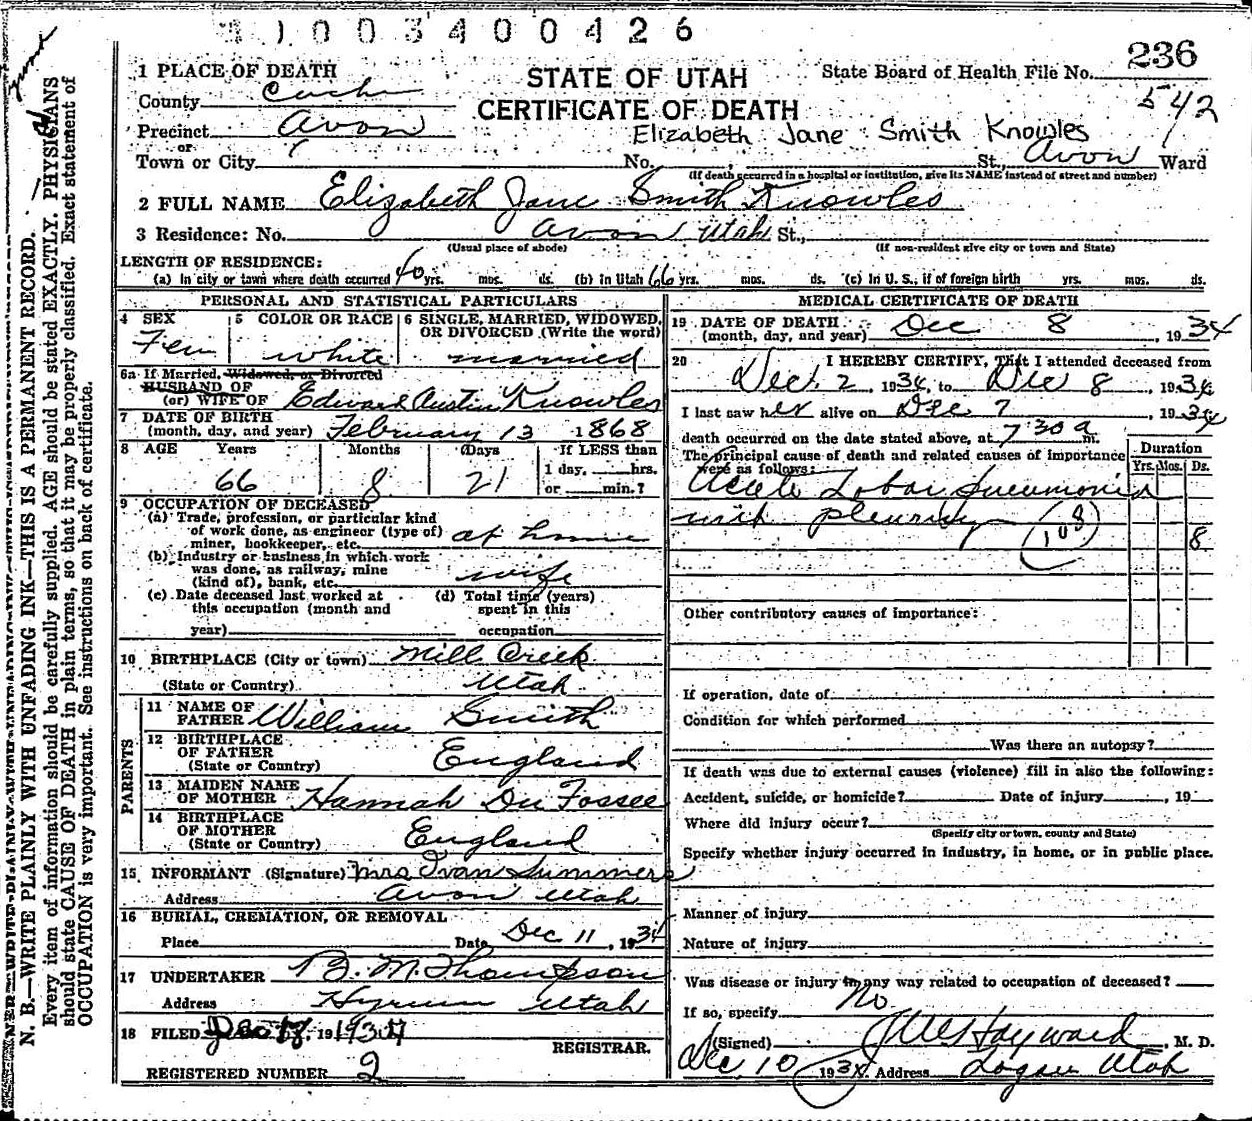 1003400426
236
542
1 PLACE OF DEATH
STATE OF UTAH
State Board of Health File No.
County Cache
CERTIFICATE OF DEATH
Precinct Avon
Elizabeth Jane Smith Knowles
or
Town or City No. St., Avon Ward
(If death occurred in a hospital or institution, give its NAME instead of street and number)
2 FULL NAME Elizabeth Jane Smith Knowles
3 Residence: No. Avon Utah St.,
(Usual place of abode) (If non-resident give city or town and State)
LENGTH OF RESIDENCE:
(a) In city or town where death occurred 40 yrs. mos. ds. (b) In Utah 66 yrs. mos. ds. (c) In U. S., if of foreign birth yrs. mos. ds.
PERSONAL AND STATISTICAL PARTICULARS
4 SEX 5 COLOR OR RACE 6 SINGLE, MARRIED, WIDOWED,
OR DIVORCED (Write the word)
Fem white married
6a If Married, Widowed, or Divorced
HUSBAND OF
(or) WIFE OF Edward Austin Knowles
7 DATE OF BIRTH
(month, day, and year) February 13 1868
8 AGE Years Months Days If LESS than
1 day, hrs.
or min.?
66 8 21
9 OCCUPATION OF DECEASED
(a) Trade, profession, or particular kind
of work done, as engineer (type of)
miner, bookkeeper, etc. at home
(b) Industry or business in which work
was done, as railway, mine
(kind of), bank, etc. wife
(c) Date deceased last worked at (d) Total time (years)
this occupation (month and spent in this
year) occupation
10 BIRTHPLACE (City or town) Mill Creek
(State or Country) Utah
PARENTS
11 NAME OF
FATHER William Smith
12 BIRTHPLACE
OF FATHER
(State or Country) England
13 MAIDEN NAME
OF MOTHER Hannah Du Fossee
14 BIRTHPLACE
OF MOTHER
(State or Country) England
15 INFORMANT (Signature) Mrs Ivan Summers
Address Avon Utah
16 BURIAL, CREMATION, OR REMOVAL
Place Date Dec 11, 1934
17 UNDERTAKER B. M. Thompson
Address Hyrum Utah
18 FILED Dec 1934
REGISTRAR.
REGISTERED NUMBER 2
MEDICAL CERTIFICATE OF DEATH
19 DATE OF DEATH
(month, day, and year) Dec 8, 1934
20 I HEREBY CERTIFY, That I attended deceased from
Dec. 2, 1934, to Dec 8, 1934
I last saw her alive on Dec 7, 1934
death occurred on the date stated above, at 7 30 a m.
The principal cause of death and related causes of importance
were as follows:
Duration
Yrs. Mos. Ds.
Acute Lobar Pneumonia
with pleurisy
108
8
Other contributory causes of importance:
If operation, date of
Condition for which performed
Was there an autopsy?
If death was due to external causes (violence) fill in also the following:
Accident, suicide, or homicide? Date of injury, 19
Where did injury occur?
(Specify city or town, county and State)
Specify whether injury occurred in industry, in home, or in public place.
Manner of injury
Nature of injury
Was disease or injury in any way related to occupation of deceased?
If so, specify No
(Signed) J W Hayward, M. D.
Dec 10 1934 Address Logan Utah
N. B.—WRITE PLAINLY WITH UNFADING INK—THIS IS A PERMANENT RECORD.
Every item of information should be carefully supplied. AGE should be stated EXACTLY. PHYSICIANS
should state CAUSE OF DEATH in plain terms, so that it may be properly classified. Exact statement of
OCCUPATION is very important. See instructions on back of certificate.